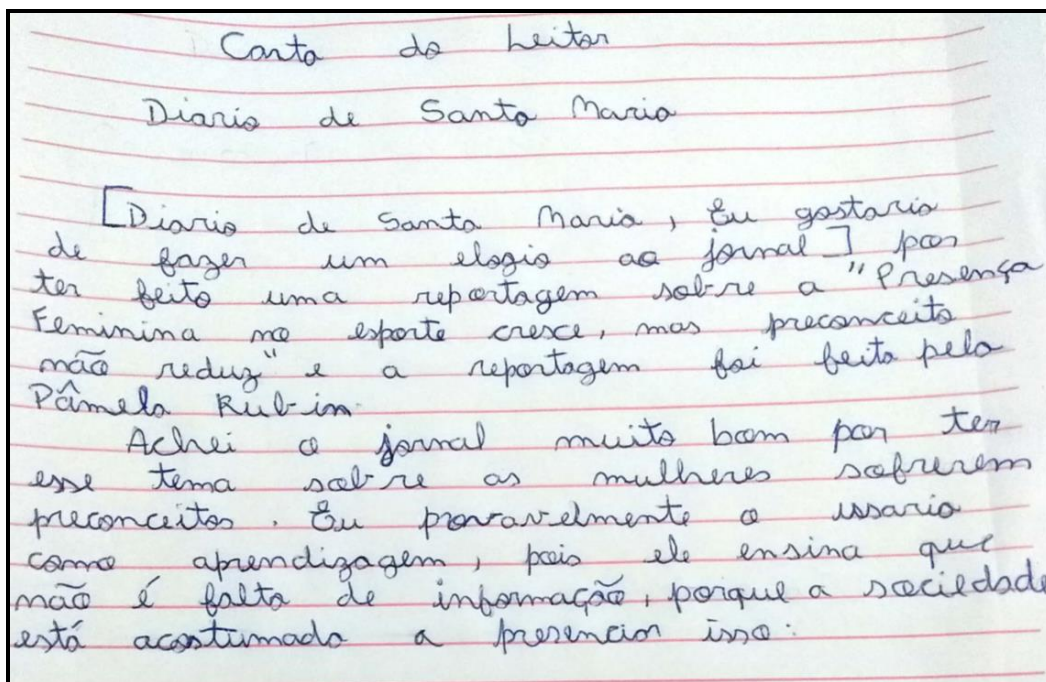 Carta do Leitor
Diario de Santa Maria
[Diario de Santa Maria, Eu gostaria
de fazer um elogio ao jornal] por
ter feito uma reportagem sobre a "Presença
Feminina no esporte cresce, mas preconceito
não reduz" e a reportagem foi feita pela
Pâmela Rubin.
Achei o jornal muito bom por ter
esse tema sobre as mulheres sofrerem
preconceitos. Eu provavelmente o ussaria
como aprendizagem, pois ele ensina que
não é falta de informação, porque a sociedade
está acostumada a presenciar isso.